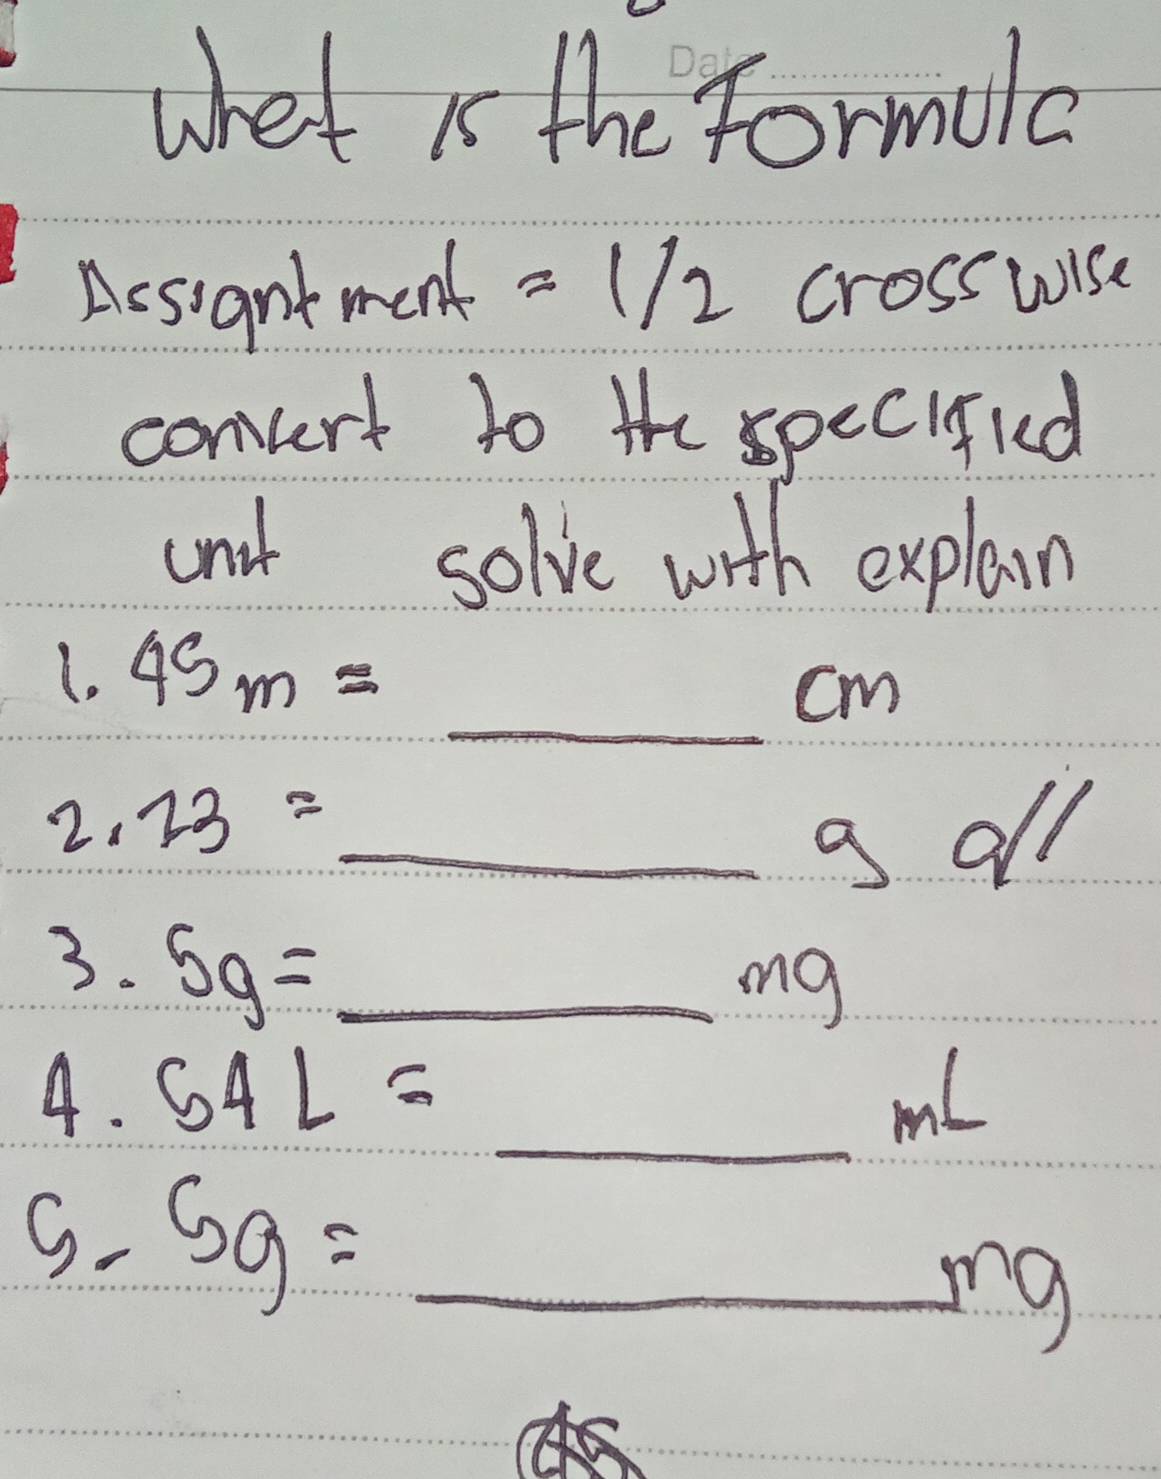 Date
what is the Formula
Assigntment = 1/2 crosswise
convert to the specified
unit solve with explain
1. 45 m = cm
2. 23 = g all
3. 5g = mg
4. 54 L = mL
5. 5g = mg